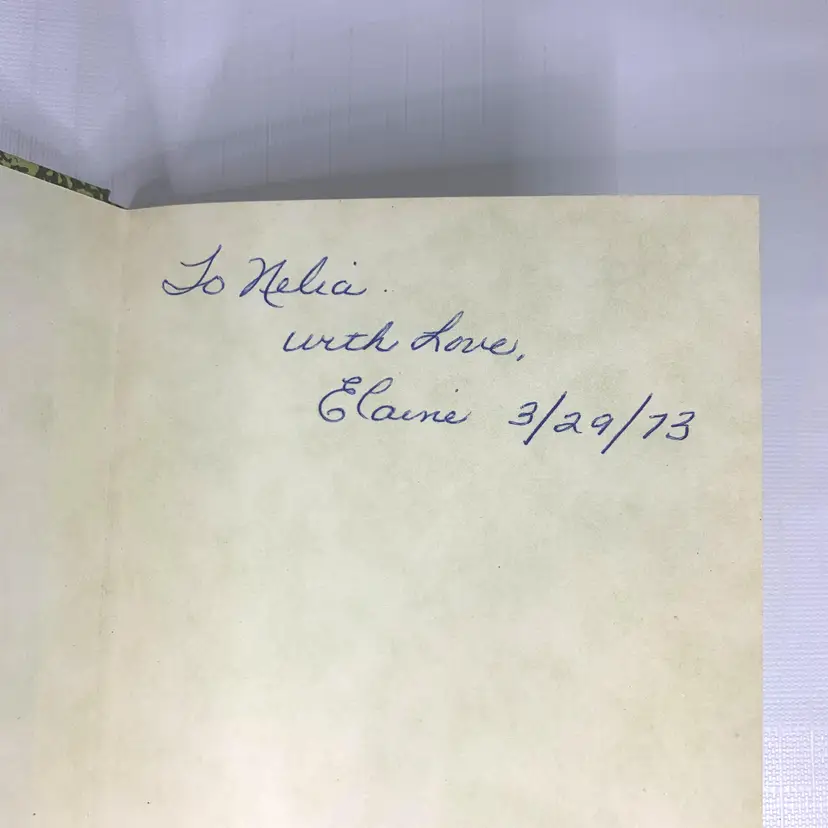 To Nelia
with Love,
Elaine 3/29/73